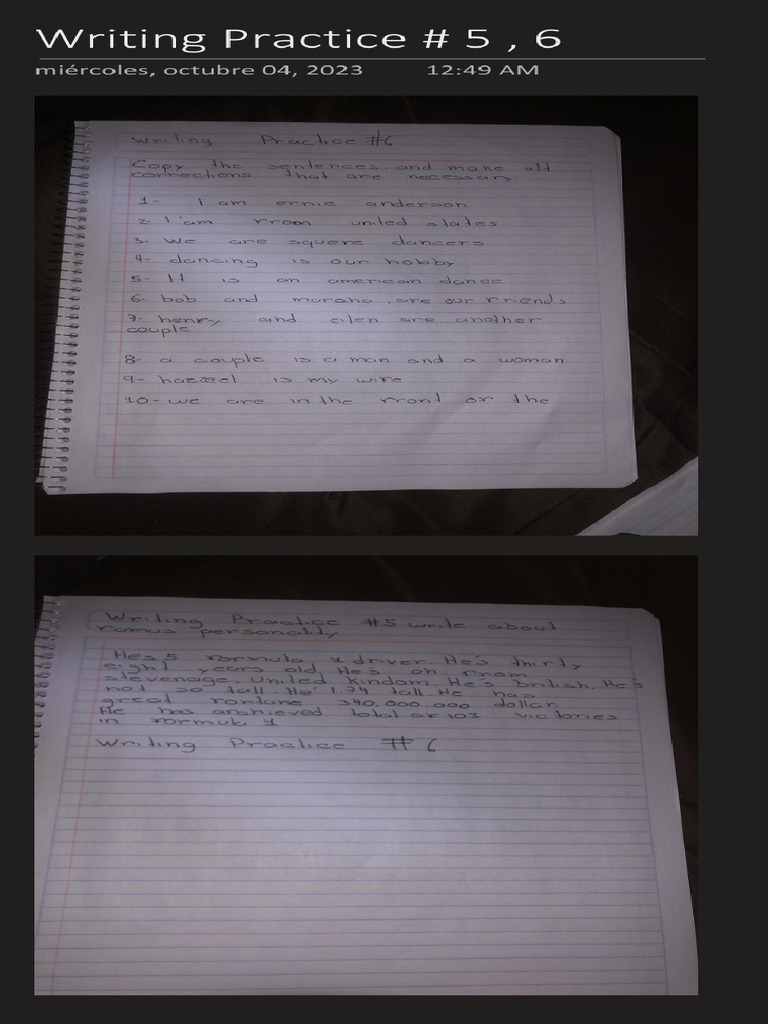 Writing Practice # 5 , 6
miércoles, octubre 04, 2023 12:49 AM
Writing Practice #6
Copy the sentences and make all
connections that are necessary
1- I am ernie anderson
2- I'am from united states
3- We are squere dancers
4- dancing is our hobby
5- It is an american dance
6- bob and marsha, are our friends
7- henry and eilen are another
couple
8- a couple is a man and a woman
9- hazzel is my wife
10- we are in the front of the
Writing Practice #5 write about
famus personality
Hes 5 formula 1 driver. He's thirty
eight years old He's from
stevenage, United Kindom. He's british. He's
not so tall. He' 1.74 tall. He has
great fortone 340.000.000 dollar
He has archieved total of 103 victories
in formula 1
Writing Practice # 6